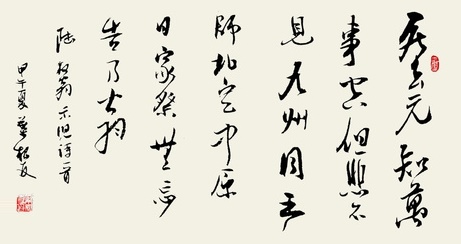 死去元知萬
事空但悲不
見九州同王
師北定中原
日家祭無忘
告乃翁
陆放翁示児詩一首
甲午夏